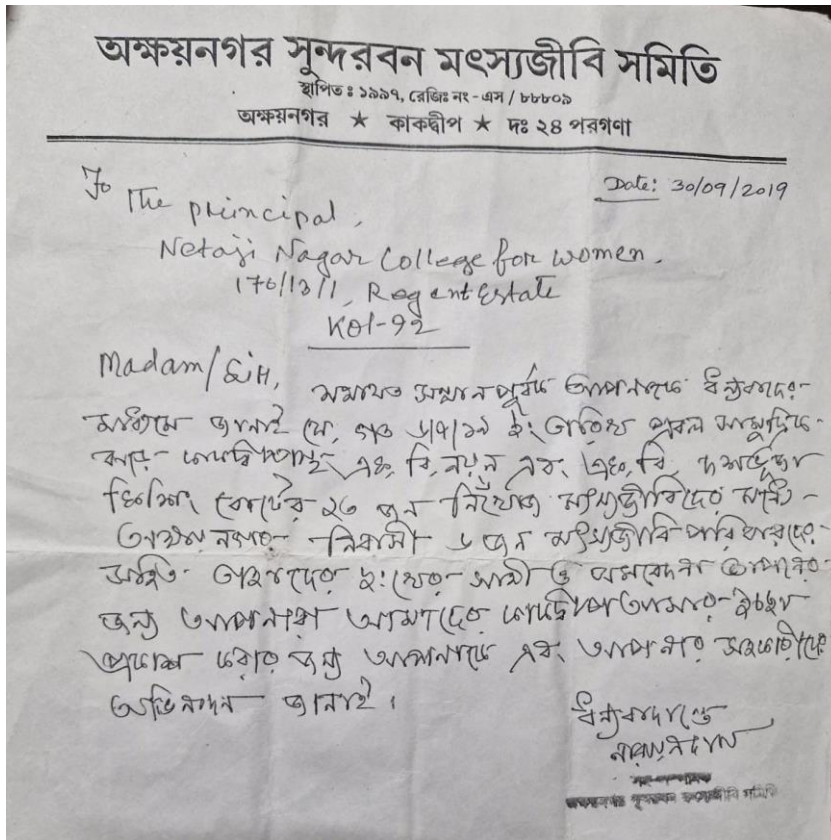 অক্ষয়নগর সুন্দরবন মৎস্যজীবি সমিতি
স্থাপিত : ১৯৯৭, রেজিঃ নং - এস / ৮৮৮০৯
অক্ষয়নগর ★ কাকদ্বীপ ★ দঃ ২৪ পরগণা
Date: 30/09/2019
To The principal,
Netaji Nagar College for women.
170/13/1, Regent Estate
KOl-92
Madam/Sir,
যথাযত সম্মান পূর্বক আপনাকে ধন্যবাদের
মাধ্যমে জানাই যে, গত ৬/৭/১৯ ইং তারিখ প্রবল সামুদ্রিক
ঝড়ে কাকদ্বীপের এফ, বি, নয়ন এবং এফ, বি, দশভূজা
ফিশিং বোটের ২৩ জন নিখোঁজ মৎস্যজীবিদের মধ্যে
অক্ষয় নগর নিবাসী ৬ জন মৎস্যজীবি পরিবারদের
সহিত তাহাদের দুঃখের সাথী ও সমবেদনা জ্ঞাপনের
জন্য আপনারা আমাদের কাকদ্বীপে আসার ইচ্ছা
প্রকাশ করার জন্য আপনাকে এবং আপনার সহকারীদের
অভিনন্দন জানাই।
ধন্যবাদান্তে
সুন্দরবন মৎস্যজীবি সমিতি